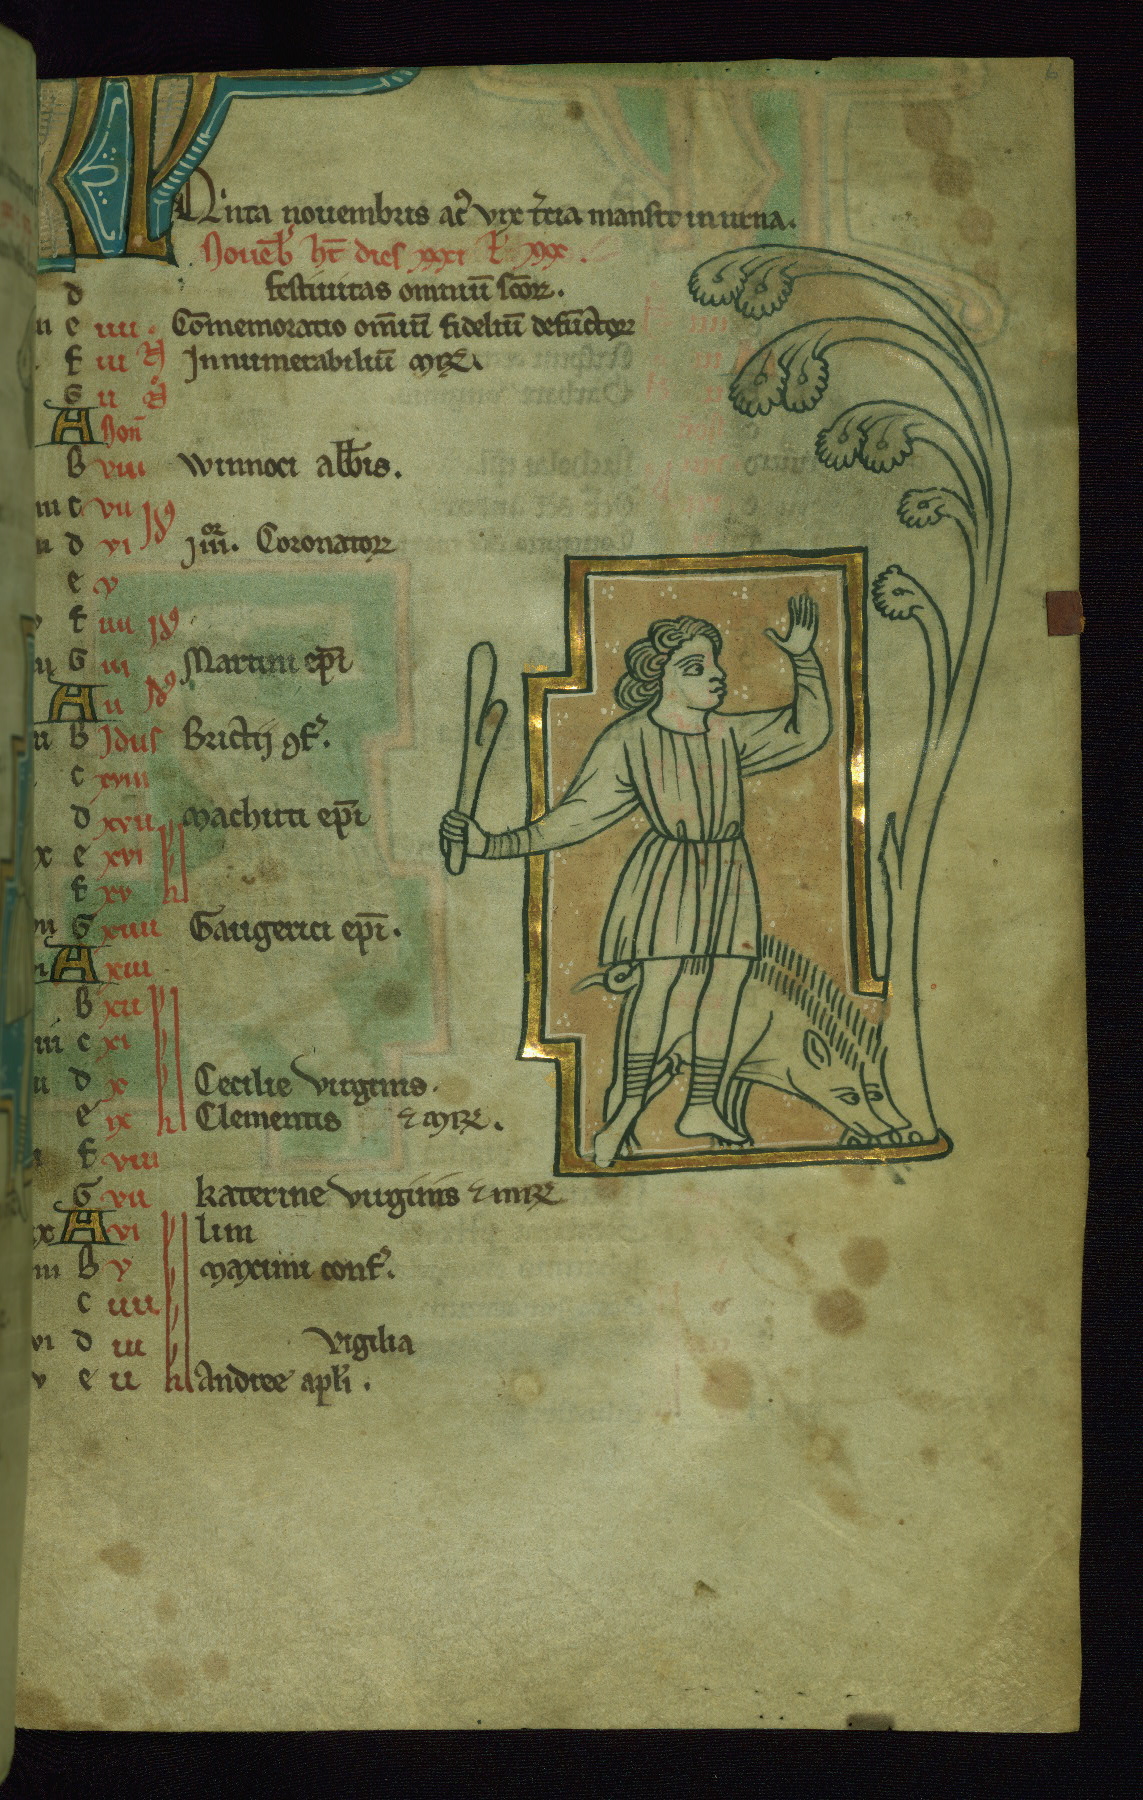 Qinta nouembris acꝰ vix t̄cia mansit in urna.
Nouēbr̄ ht̄ dies xxx
d festiuitas omniū sc̄oꝝ.
e iiii Cōmemoratio om̄iū fideliū defūctoꝝ
f iii Innumerabiliū mr̄
G ii
A Non̄
B viii Winnoci abb̄is.
iii c vii
d vi iiiioꝝ. Coronatoꝝ
e v
f iiii
G iii Martini ep̄i
A ii
B Idus Brictij 9f.
c xviii
d xvii Machuti ep̄i
x e xvi
f xv
G xiiii Gaugerici ep̄i.
A xiii
B xii
iii c xi
d x Cecilie virginis.
e ix Clementis et mr̄.
f viii
G vii katerine virginis et mr̄
ix A vi lini
B v maximi conf.
c iiii
vi d iii vigilia
v e ii Andree apl̄i.